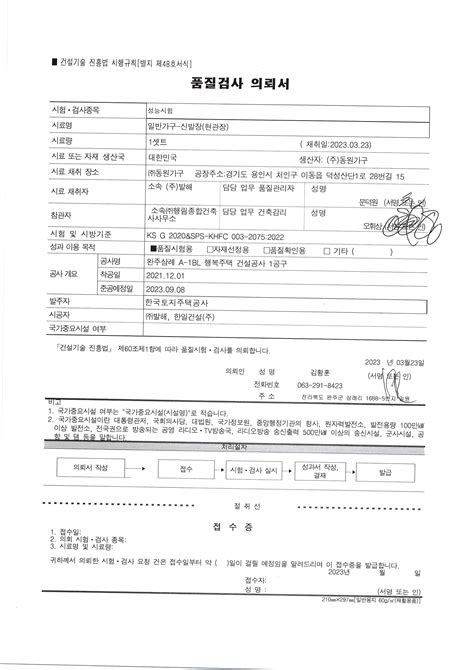 ■ 건설기술 진흥법 시행규칙[별지 제48호서식]
품질검사 의뢰서
시험·검사종목 성능시험
시료명 일반가구-신발장(현관장)
시료량 1셋트 ( 채취일:2023.03.23)
시료 또는 자재 생산국 대한민국 생산자: (주)동원가구
시료 채취 장소 ㈜동원가구 공장주소:경기도 용인시 처인구 이동읍 덕성산단1로 28번길 15
시료 채취자 소속 (주)발해 담당 업무 품질관리자 성명
문덕원 (서명 또는 인)
참관자 소속㈜행림종합건축사사무소 담당 업무 건축감리 성명
오휘상 (서명 또는 인)
시험 및 시방기준 KS G 2020&SPS-KHFC 003-2075:2022
성과 이용 목적 ■품질시험용 □자재선정용 □품질확인용 □ 기타 ( )
공사 개요 공사명 완주삼례 A-1BL 행복주택 건설공사 1공구
착공일 2021.12.01
준공예정일 2023.09.08
발주자 한국토지주택공사
시공자 ㈜발해, 한일건설(주)
국가중요시설 여부
「건설기술 진흥법」 제60조제1항에 따라 품질시험·검사를 의뢰합니다.
2023 년 03월23일
의뢰인 성 명 김황훈 (서명 또는 인)
전화번호 063-291-8423
주 소 전라북도 완주군 삼례리 1688-5번지 일원
비고
1. 국가중요시설 여부는 "국가중요시설(시설명)"로 적습니다.
2. 국가중요시설이란 대통령관저, 국회의사당, 대법원, 국가정보원, 중앙행정기관의 청사, 원자력발전소, 발전용량 100만㎾
이상 발전소, 전국권으로 방송되는 공영 라디오·TV방송국, 라디오방송 송신출력 500만㎾ 이상의 송신시설, 군사시설, 공
항 및 댐 등을 말합니다.
처리절차
의뢰서 작성 접수 시험·검사 실시 성과서 작성, 결재 발급
절 취 선
접 수 증
1. 접수일:
2. 의뢰 시험·검사 종목:
3. 시료명 및 시료량:
귀하께서 의뢰한 시험·검사 요청 건은 접수일부터 약 ( )일이 걸릴 예정임을 알려드리며 이 접수증을 발급합니다.
2023년 월 일
접수자:
성 명 : (서명 또는 인)
210㎜×297㎜[일반용지 60g/㎡(재활용품)]